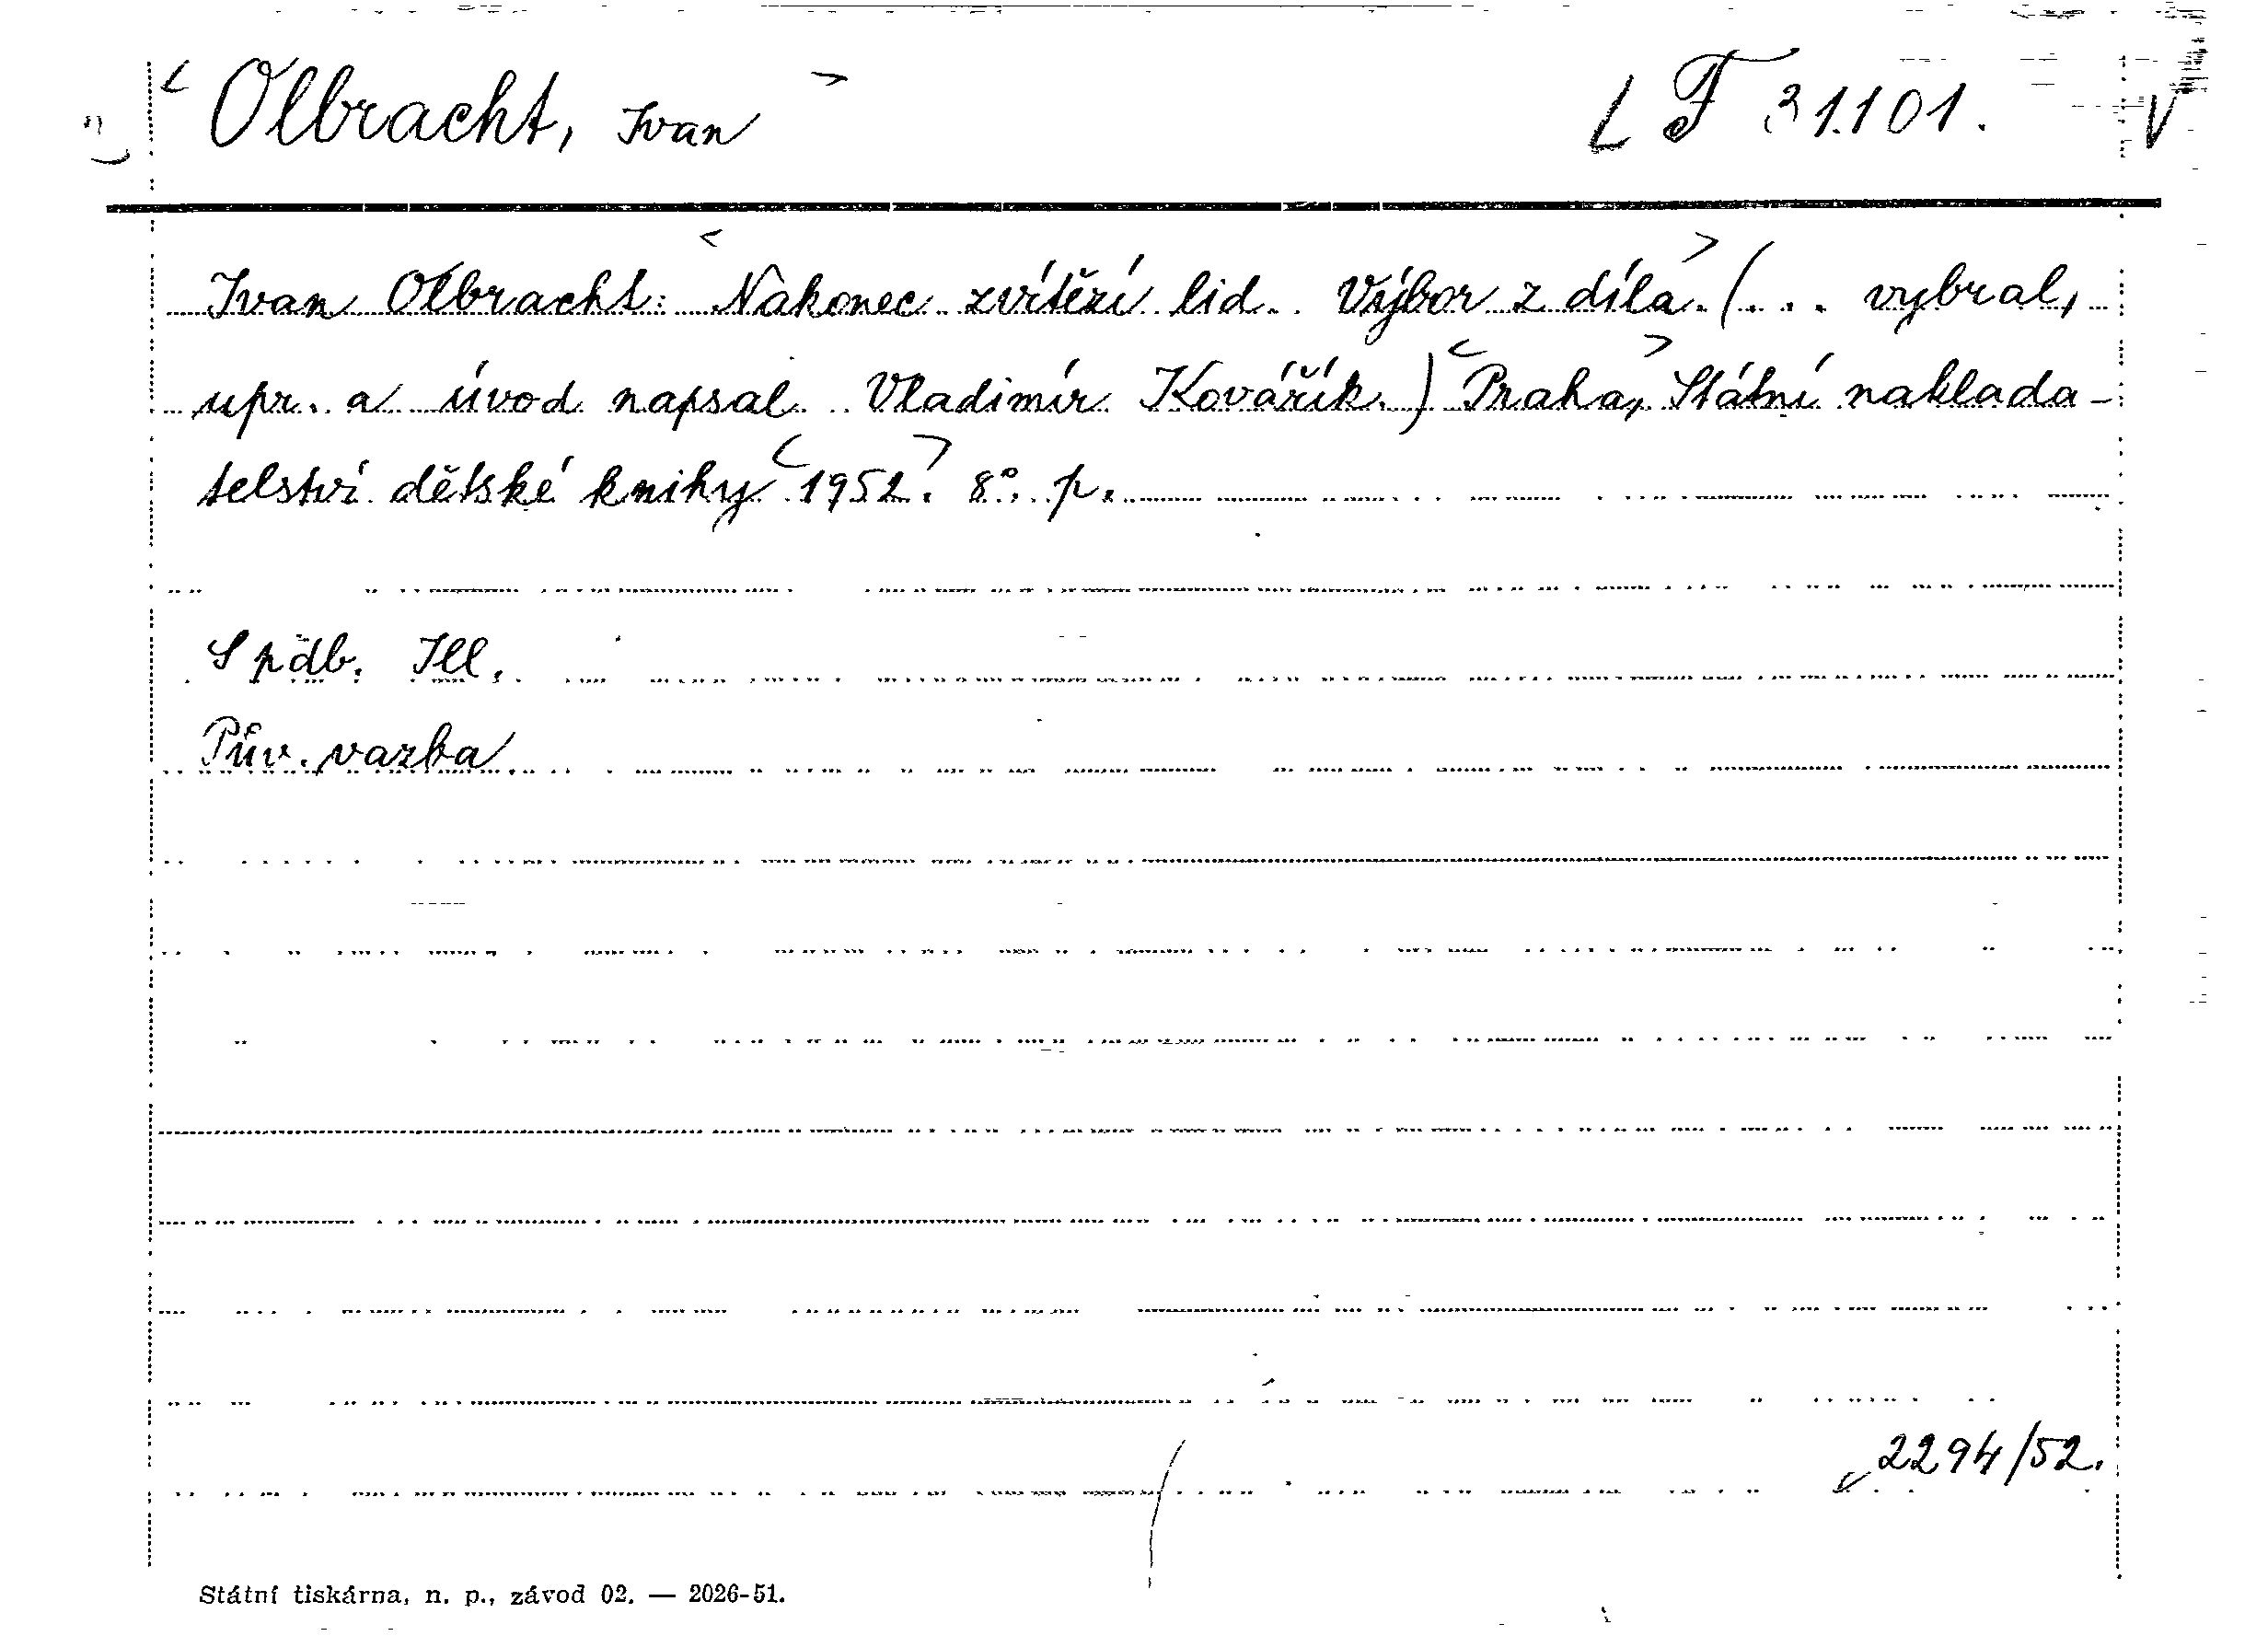 < Olbracht, Ivan > L F 31.101. V
Ivan Olbracht: <Nakonec zvítězí lid. Výbor z díla.> (... vybral,
upr. a úvod napsal Vladimír Kovářík.) <Praha,> Státní naklada-
telství dětské knihy <1952.> 8°. p.
S pdb. Ill.
Pův. vazba
2294/52.
Státní tiskárna, n. p., závod 02. — 2026-51.